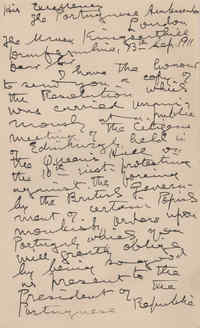 His Excellency
The Portuguese Ambassador
London
The Manse, Kinneddar
Dunfermline, 13th Sep. 1911
Dear Sir
I have the honour
to send you a copy of
the Resolution which
was carried unani-
mously at a public
meeting of the Citizens
of Edinburgh held in
the Queen's Hall on
the 10th inst. protesting
against the forcing
by the British Govern-
ment of certain
monkish orders upon
Portugal which you
will greatly oblige
by being so good
as present to the
President of the
Portuguese Republic